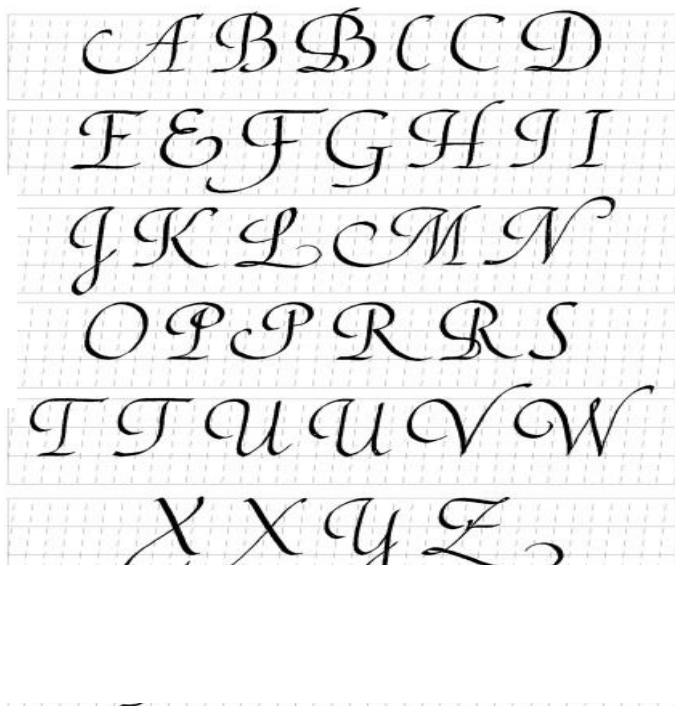 A B B C C D
E E F G H I I
J K L M N
O P P R R S
T T U U V W
X X Y Z